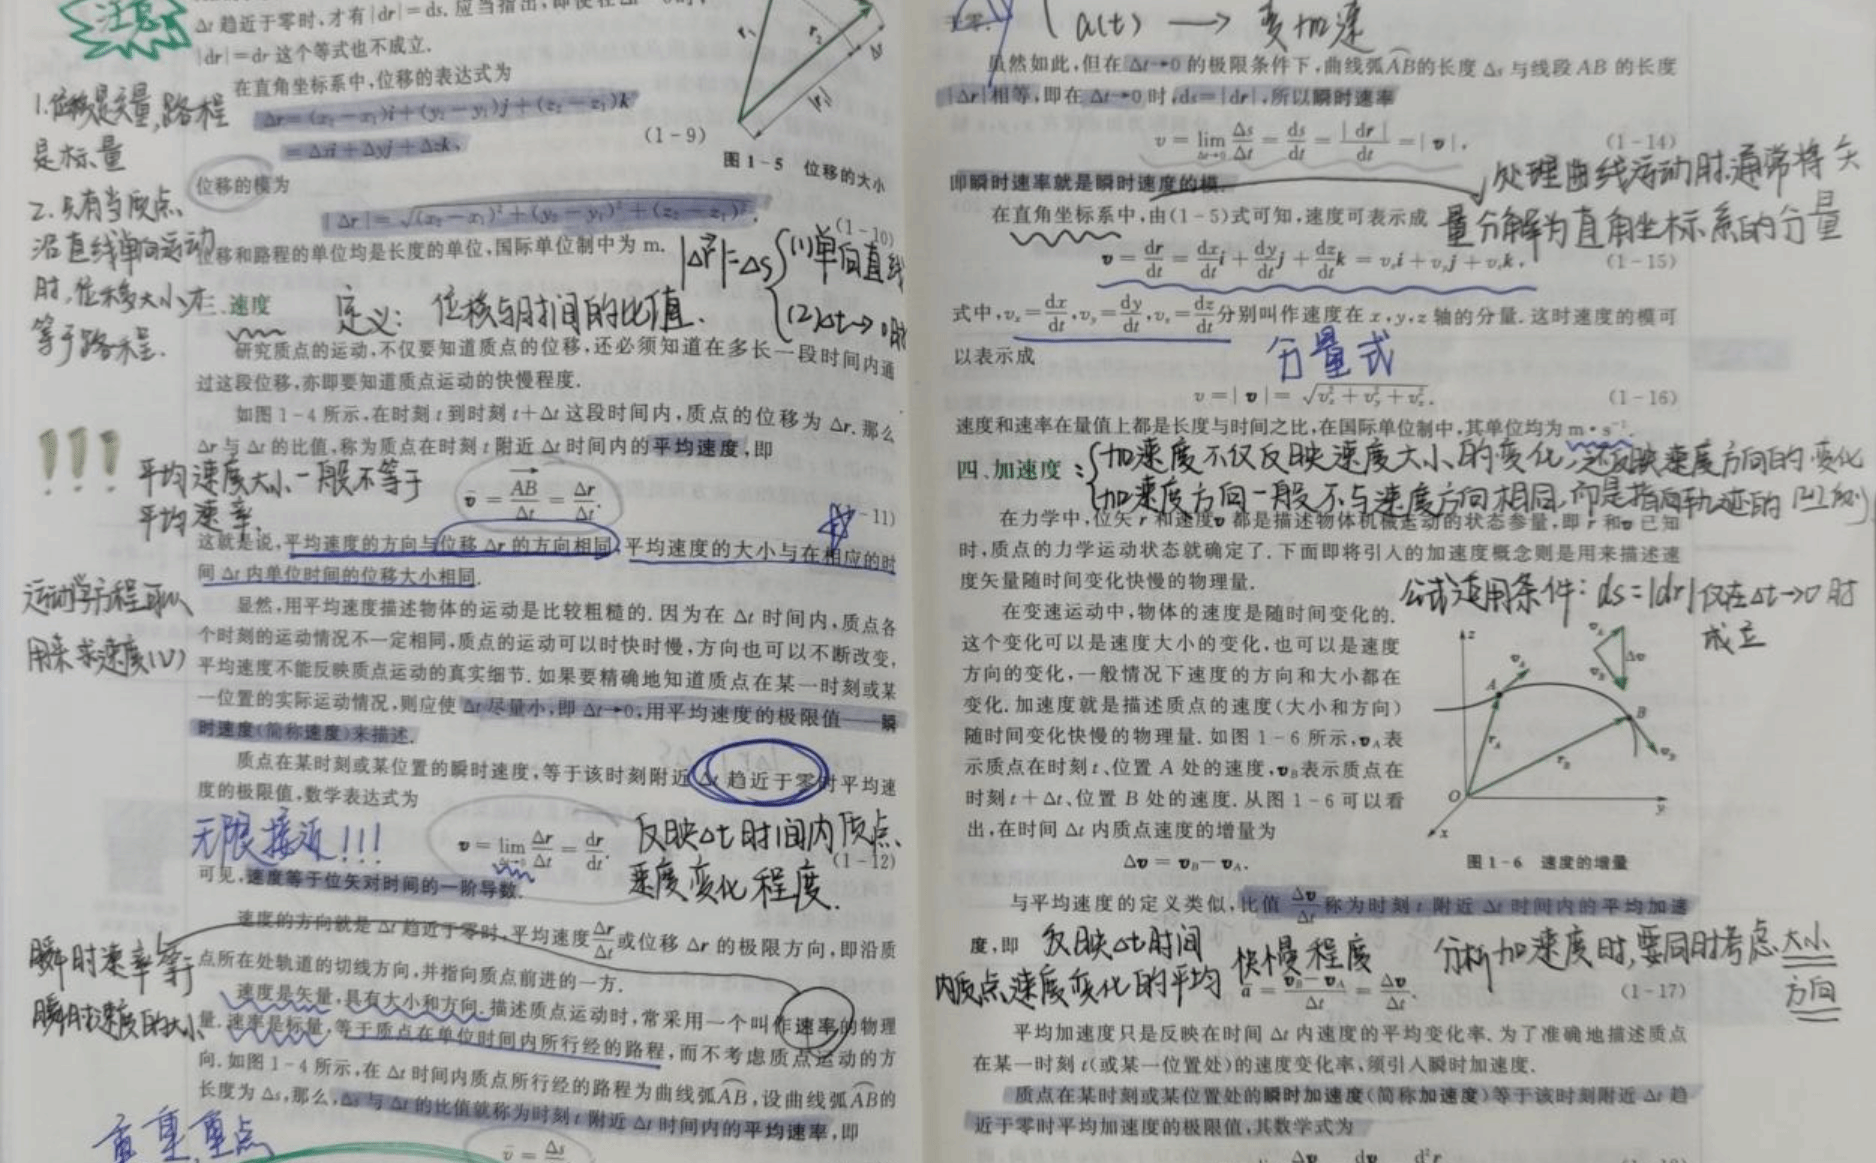 注意
Δt 趋近于零时,才有|dr|=ds. 应当指出,即使在
|dr|=dr 这个等式也不成立.
在直角坐标系中,位移的表达式为
Δr=(x₂-x₁)i+(y₂-y₁)j+(z₂-z₁)k
=Δxi+Δyj+Δzk,
(1-9)
图 1-5 位移的大小
1.位移是矢量,路程
是标量
位移的模为
|Δr|=√(x₂-x₁)²+(y₂-y₁)²+(z₂-z₁)².
(1-10)
2.只有当质点
沿直线单向运动
时,位移大小才
等于路程.
位移和路程的单位均是长度的单位,国际单位制中为 m.
|Δr⃗|=Δs {(1)单向直线
(2)Δt→0时
三、速度
定义: 位移与时间的比值.
研究质点的运动,不仅要知道质点的位移,还必须知道在多长一段时间内通
过这段位移,亦即要知道质点运动的快慢程度.
如图 1-4 所示,在时刻 t 到时刻 t+Δt 这段时间内,质点的位移为 Δr. 那么
Δr 与 Δt 的比值,称为质点在时刻 t 附近 Δt 时间内的平均速度,即
!!!
平均速度大小一般不等于
平均速率.
v̄ = AB/Δt = Δr/Δt.
-11)
这就是说,平均速度的方向与位移 Δr 的方向相同,平均速度的大小与在相应的时
间 Δt 内单位时间的位移大小相同.
运动学方程可以
用来求速度(v)
显然,用平均速度描述物体的运动是比较粗糙的. 因为在 Δt 时间内,质点各
个时刻的运动情况不一定相同,质点的运动可以时快时慢,方向也可以不断改变,
平均速度不能反映质点运动的真实细节. 如果要精确地知道质点在某一时刻或某
一位置的实际运动情况,则应使 Δt 尽量小,即 Δt→0,用平均速度的极限值——瞬
时速度(简称速度)来描述.
质点在某时刻或某位置的瞬时速度,等于该时刻附近 Δt 趋近于零时平均速
度的极限值,数学表达式为
无限接近!!!
v = lim Δt→0 Δr/Δt = dr/dt.
(1-12)
反映Δt时间内质点
速度变化程度.
可见,速度等于位矢对时间的一阶导数.
速度的方向就是 Δt 趋近于零时,平均速度 Δr/Δt 或位移 Δr 的极限方向,即沿质
点所在处轨道的切线方向,并指向质点前进的一方.
瞬时速率等于
瞬时速度的大小
速度是矢量,具有大小和方向. 描述质点运动时,常采用一个叫作速率的物理
量. 速率是标量,等于质点在单位时间内所行经的路程,而不考虑质点运动的方
向. 如图 1-4 所示,在 Δt 时间内质点所行经的路程为曲线弧AB,设曲线弧AB的
长度为 Δs,那么,Δs 与 Δt 的比值就称为时刻 t 附近 Δt 时间内的平均速率,即
重重重点
v̄ = Δs
于零.
a(t) → 变加速
虽然如此,但在 Δt→0 的极限条件下,曲线弧AB的长度 Δs 与线段 AB 的长度
|Δr|相等,即在 Δt→0 时,ds=|dr|,所以瞬时速率
v = lim Δt→0 Δs/Δt = ds/dt = |dr|/dt = |v|,
(1-14)
即瞬时速率就是瞬时速度的模.
处理曲线运动时,通常将矢
量分解为直角坐标系的分量
在直角坐标系中,由(1-5)式可知,速度可表示成
v = dr/dt = dx/dt i + dy/dt j + dz/dt k = vₓi + v_yj + v_zk,
(1-15)
式中,vₓ=dx/dt,v_y=dy/dt,v_z=dz/dt 分别叫作速度在 x,y,z 轴的分量. 这时速度的模可
以表示成
分量式
v = |v| = √vₓ²+v_y²+v_z².
(1-16)
速度和速率在量值上都是长度与时间之比,在国际单位制中,其单位均为 m·s⁻¹.
四、加速度:
{加速度不仅反映速度大小的变化,还反映速度方向的变化
加速度方向一般不与速度方向相同,而是指向轨迹的凹侧
在力学中,位矢 r 和速度 v 都是描述物体机械运动的状态参量,即 r 和 v 已知
时,质点的力学运动状态就确定了. 下面即将引入的加速度概念则是用来描述速
度矢量随时间变化快慢的物理量.
公式适用条件: ds=|dr|仅在Δt→0时
成立
在变速运动中,物体的速度是随时间变化的.
这个变化可以是速度大小的变化,也可以是速度
方向的变化,一般情况下速度的方向和大小都在
变化. 加速度就是描述质点的速度(大小和方向)
随时间变化快慢的物理量. 如图 1-6 所示,v_A表
示质点在时刻 t、位置 A 处的速度,v_B表示质点在
时刻 t+Δt、位置 B 处的速度. 从图 1-6 可以看
出,在时间 Δt 内质点速度的增量为
Δv = v_B - v_A.
图 1-6 速度的增量
与平均速度的定义类似,比值 Δv/Δt 称为时刻 t 附近 Δt 时间内的平均加速
度,即
反映Δt时间
内质点速度变化的平均快慢程度
分析加速度时,要同时考虑大小
方向
ā = (v_B - v_A)/Δt = Δv/Δt.
(1-17)
平均加速度只是反映在时间 Δt 内速度的平均变化率. 为了准确地描述质点
在某一时刻 t(或某一位置处)的速度变化率,须引入瞬时加速度.
质点在某时刻或某位置处的瞬时加速度(简称加速度)等于该时刻附近 Δt 趋
近于零时平均加速度的极限值,其数学式为
Δv dv d²r